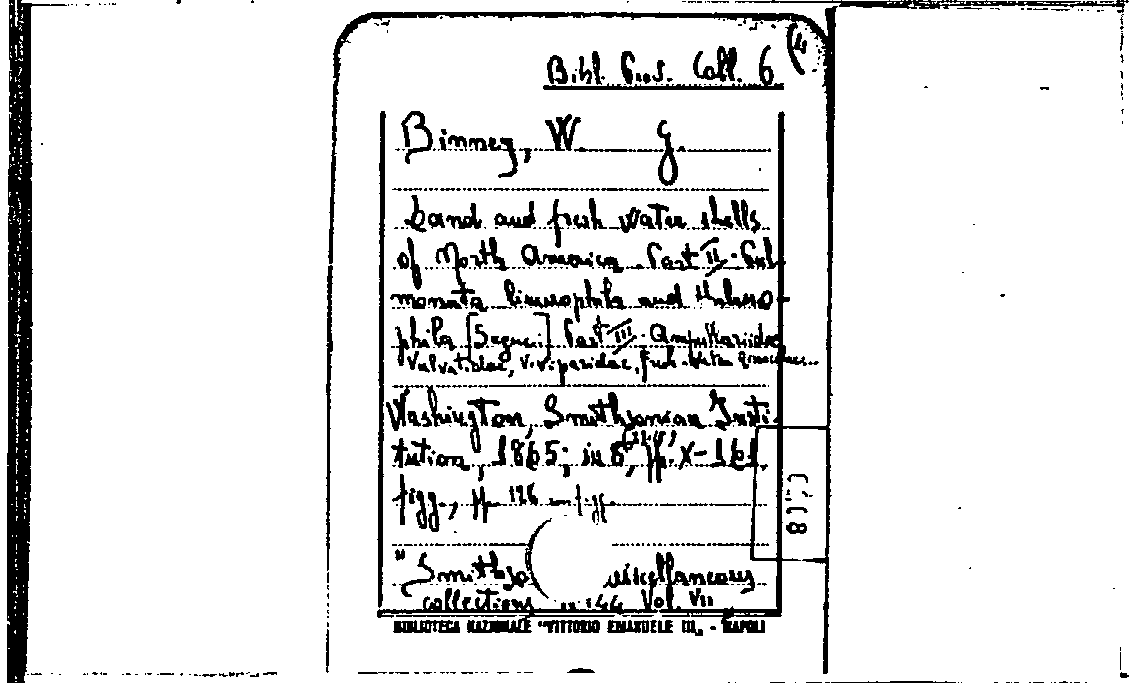 Bibl. Pus. Coll. 6 (4
Binney, W. G.
Land and fresh water shells
of North America. Part II. Pul-
monata limnophila and thalasso-
phila [Segue:] Part III. Ampullariidae,
Valvatidae, Viviparidae, fresh-water
Washington, Smithsonian Insti-
tution, 1865; in 8°, pp. X-161,
figg., pp. 126 figg.
"Smithso iscellaneous
collections 144 Vol. VII
BIBLIOTECA NAZIONALE "VITTORIO EMANUELE III" - NAPOLI